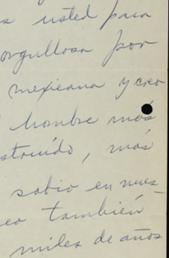 s usted para
orgullosa por
mexicana y creo
hombre más
struído, más
sabio en nues-
eo también
miles de años